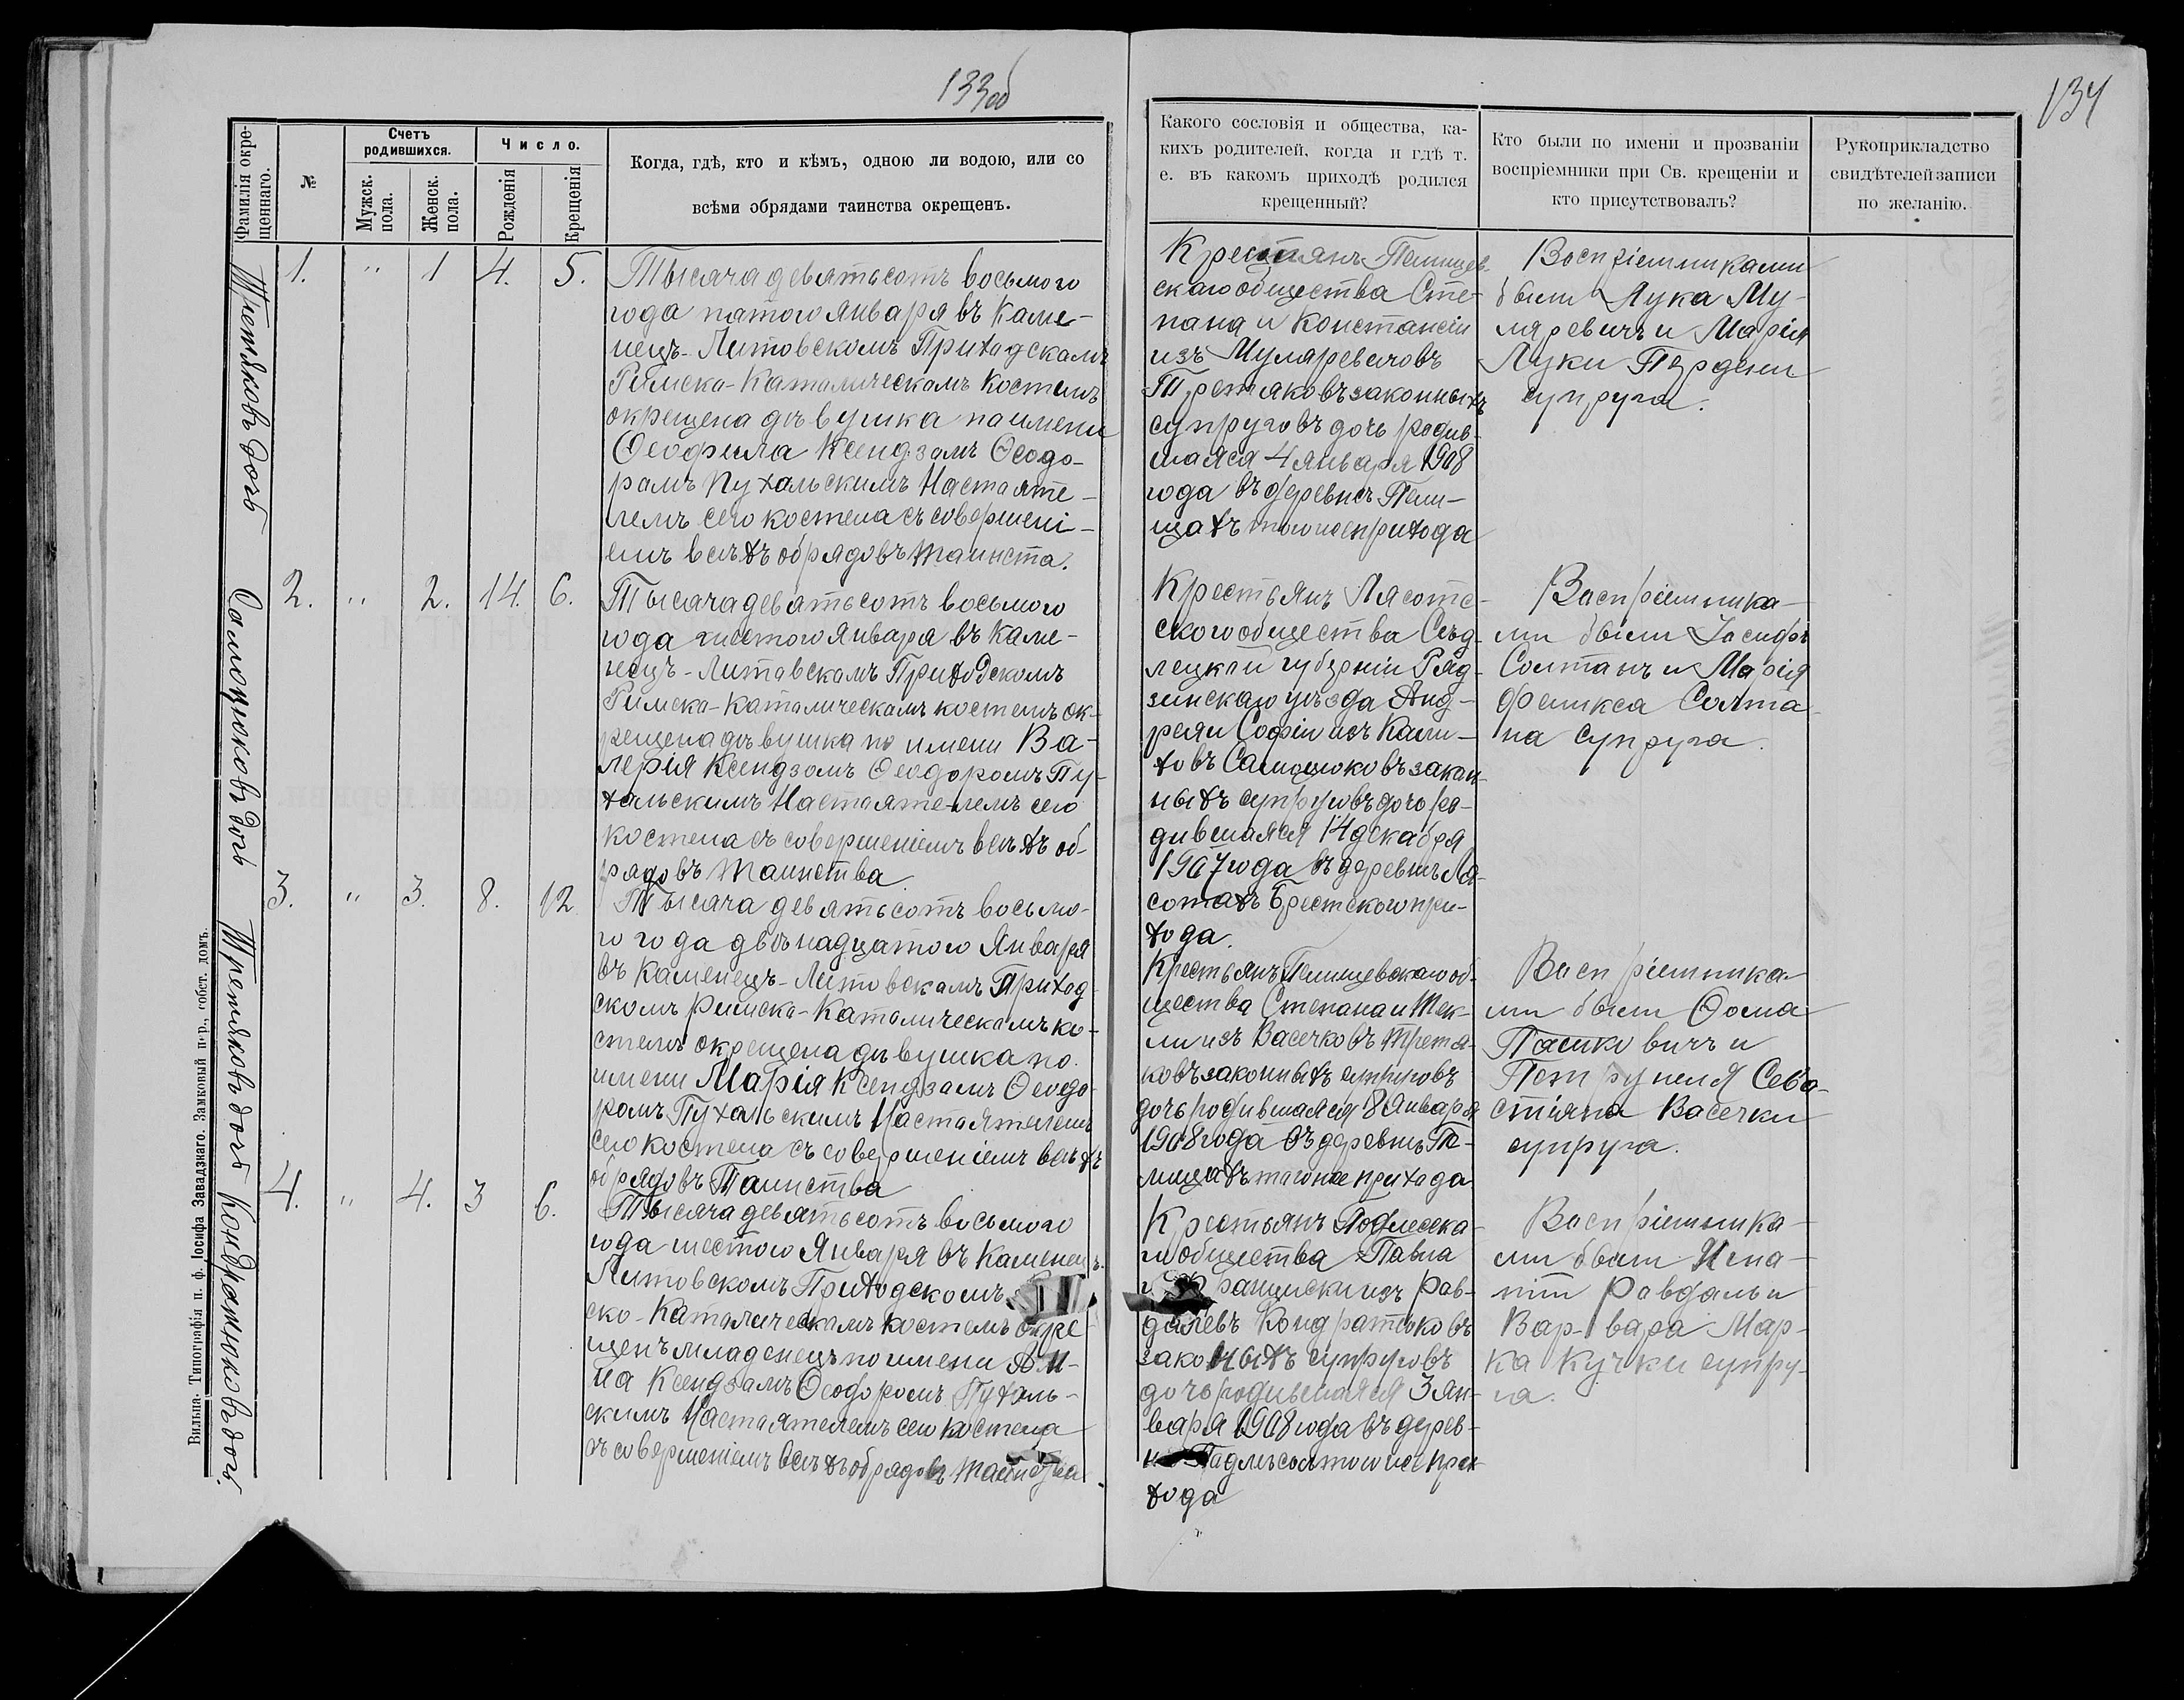 133об
134
Фамилія окре-
щеннаго.
№
Счетъ
родившихся.
Мужск.
пола.
Женск.
пола.
Число.
Рожденія
Крещенія
Когда, гдѣ, кто и кѣмъ, одною ли водою, или со
всѣми обрядами таинства окрещенъ.
Какого сословія и общества, ка-
кихъ родителей, когда и гдѣ т.
е. въ какомъ приходѣ родился
крещенный?
Кто были по имени и прозваніи
воспріемники при Св. крещеніи и
кто присутствовалъ?
Рукоприкладство
свидѣтелей записи
по желанію.
Третяковъ дочь
1. " 1 4. 5.
Тысяча девятьсотъ восьмого
года пятого января въ Каме-
нецъ-Литовскомъ Приходскамъ
Римско-Каталическамъ Костелѣ
окрещена дѣвушка па имени
Ѳеофила Ксендзамъ Ѳеодо-
рамъ Пухальскимъ Настояте-
лемъ сего костела съ совершені-
емъ всѣхъ обрядовъ таинста.
Крестянъ Пелищев-
скаго общества Сте-
пана и Констансіи
изъ Муляревичовъ
Третяковъ законныхъ
супруговъ дочь родив-
шаяся 4 Января 1908
года въ деревнѣ Пели-
щахъ того же прихода
Воспріемниками
были Лука Му-
ляревичъ и Марія
Луки Пердени
супруга.
Самоцюковъ дочь
2. " 2. 14. 6.
Тысяча девятьсотъ восьмого
года шестого Января въ Каме-
нецъ-Литавскамъ Приходскомъ
Римско-Каталическамъ костелѣ ок-
рещена дѣвушка по имени Ва-
лерія Ксендзомъ Ѳеодоромъ Пу-
хальскимъ Настоятелемъ сего
костела съ совершеніемъ всѣхъ об-
рядовъ Таинства.
Крестьянъ Лясотс-
ского общества Сѣд-
лецкой губерніи Рад-
зинскаго уѣзда Анд-
реяи Софіи изъ Кали-
ховъ Самоцюковъ закон-
ныхъ супруговъ дочь ро-
дившаяся 14 декабря
1907 года въ деревнѣ Ля-
сотахъ Брестского при-
хода.
Васпріемника-
ми были Іасифъ
Солтанъ и Марія
Феликса Солта-
на супруга.
Третяковъ дочь
3. " 3. 8. 12
Тысяча девятьсотъ восьмо-
го года двѣнадцатого Января
въ Каменецъ-Литовскамъ Приход-
скомъ Римска-Каталическамъ ко-
стелѣ окрещена дѣвушка по
имени Марія Ксендзамъ Ѳеодо-
ромъ Пухальскимъ Настоятелемъ
сего костела съ совершеніемъ всѣхъ
обрядовъ Таинства
Крестьянъ Пелищевскаго об-
щества Степана и Тек-
ли изъ Васечковъ Третя-
ковъ законныхъ супруговъ
дочь родившаяся 8 Января
1908 года въ деревнѣ Пе-
лищахъ тагоже прихода
Васпріемника-
ми были Ѳома
Пашковичъ и
Петрунеля Сева-
стіяна Васечки
супруга.
Кондратюковъ дочь.
4. " 4. 3 6.
Тысяча девятьсотъ восьмого
года шестого Января въ Каменецъ-
Литовскомъ Приходскомъ
ско-Каталическамъ костелѣ окре-
щенъ младенецъ по имени
на Ксендзамъ Ѳеодоромъ Пухаль-
скимъ Настоятелемъ сего костела
съ совершеніемъ всѣхъ обрядовъ Таинства
Крестьянъ Подлеска-
го общества Павла
и Францискиизъ Рав-
далевъ Кондратюковъ
законныхъ супруговъ
дочь родившаяся 3 Ян-
варя 1908 года въ дерев-
нѣ Падлѣсьи того же при-
хода
Васпріемника-
ми были Игна-
тій Равдаль и
Варвара Мар-
ка Кучки супру-
га.
Вильна. Типографія п. ф. Іосифа Завадзкаго. Замковый пер., собст. домъ.